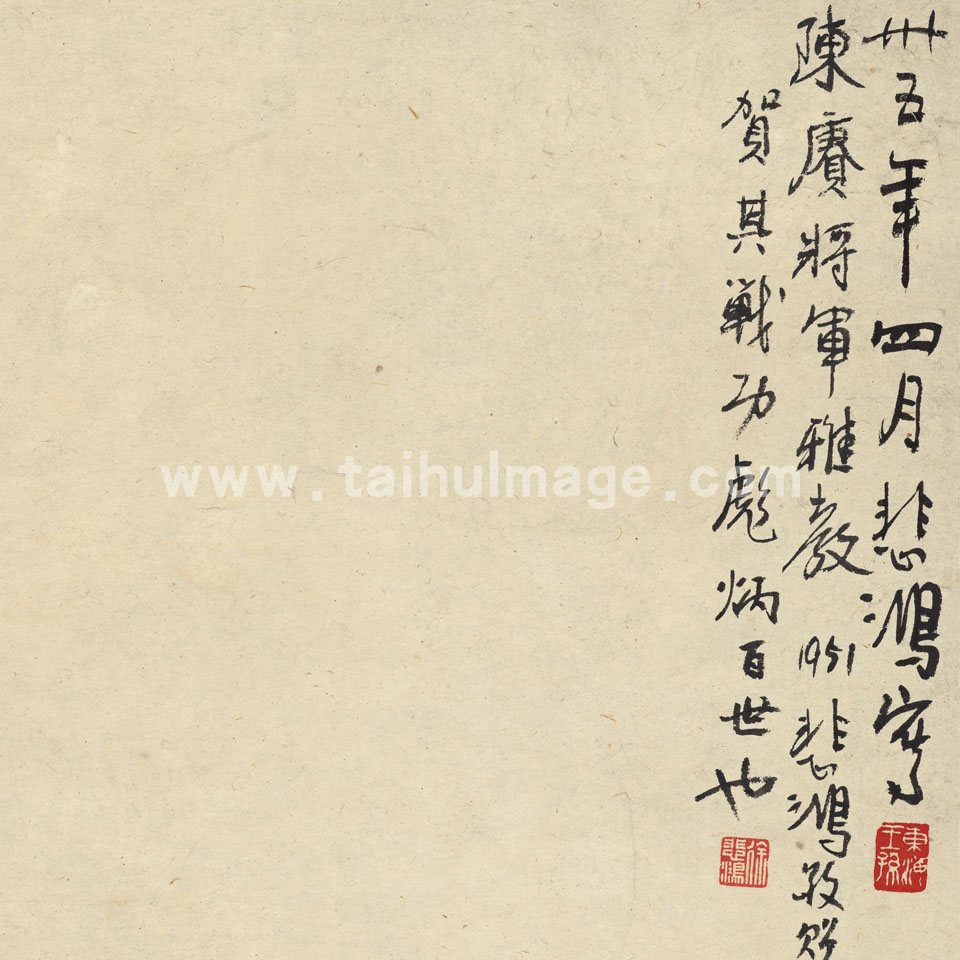 卅五年四月悲鴻寫
東海王孫
陳賡將軍雅教 1951 悲鴻敬贈
賀其戰功彪炳百世也
徐悲鴻
www.taihuImage.com